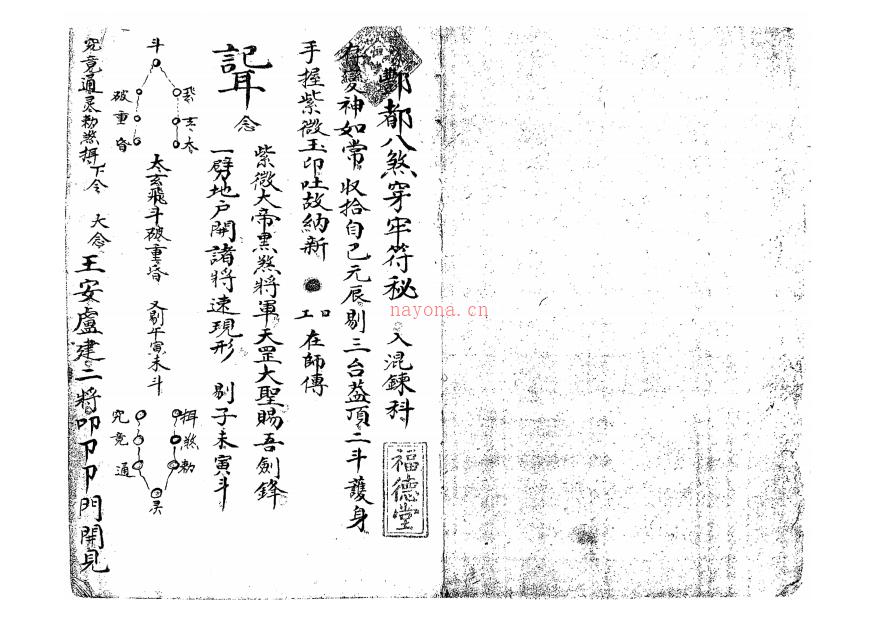 酆都八煞穿牢符秘 入混鍊科
福德堂
存變神如常收拾自己元辰剔三台蓋頂二斗護身
手握紫微玉印吐故納新 在師傳
念
紫微大帝黑煞將軍天罡大聖賜吾劍鋒
一劈地戶開諸將速現形 剔子未寅斗
斗
破
重
昏
玄
太
太玄飛斗破重昏 又剔午寅未斗
究
竟
通
灵
勅
煞
究竟通灵勅煞攝下令 大念
王安盧建二將叩卩卩門開見
nayona.cn